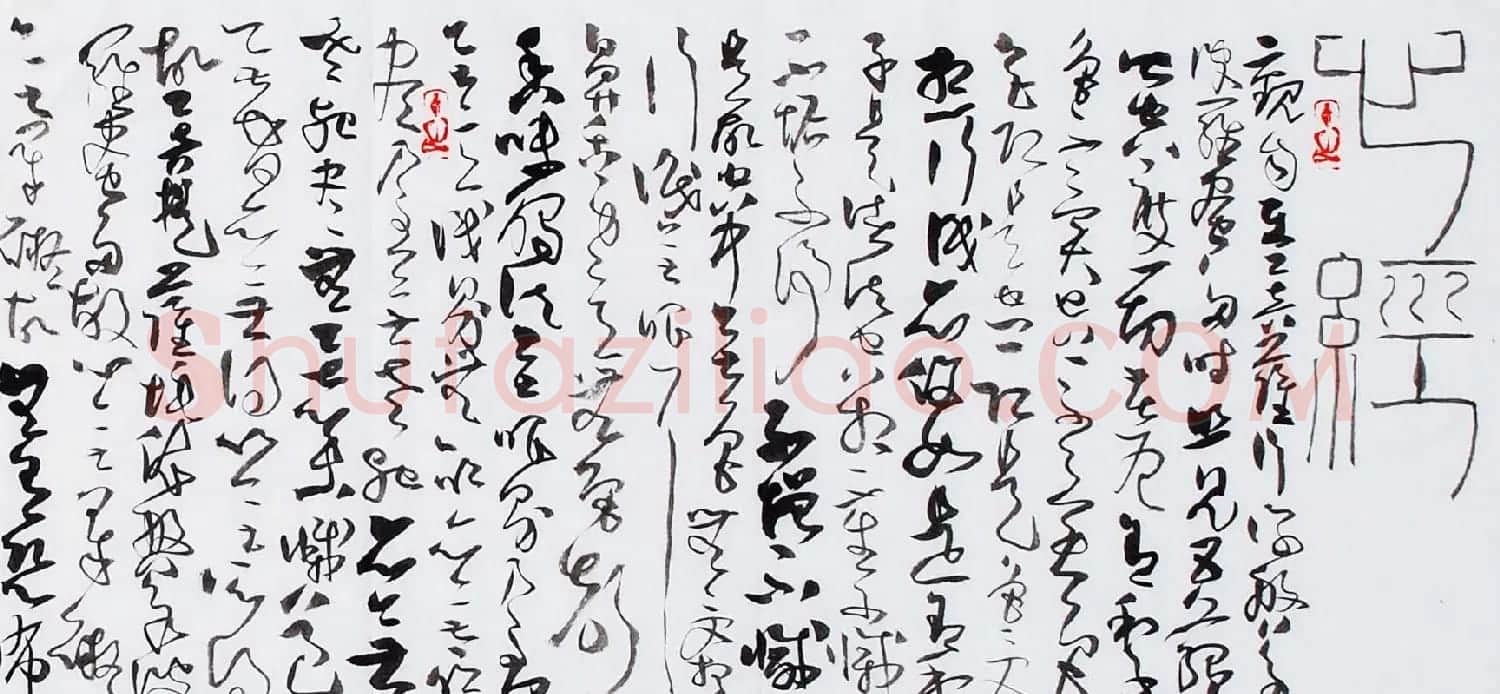 心經
觀自在菩薩行深般若
波羅蜜多時照見五蘊
皆空度一切苦厄舍利子
色不異空空不異色
空即是色受
想行識亦復如是舍利
子是諸法空相不生不滅
不垢不淨不增不減
是故空中無色無受想
行識無眼耳
鼻舌身意無色聲
香味觸法無眼界乃至
無意識界無無明亦無
盡乃至無老死亦無
老死盡無苦集滅道
無智亦無得以無所得
故菩提薩埵依般若波
羅蜜多故心無罣礙
無罣礙故無有恐怖
Shufaziliao.COM